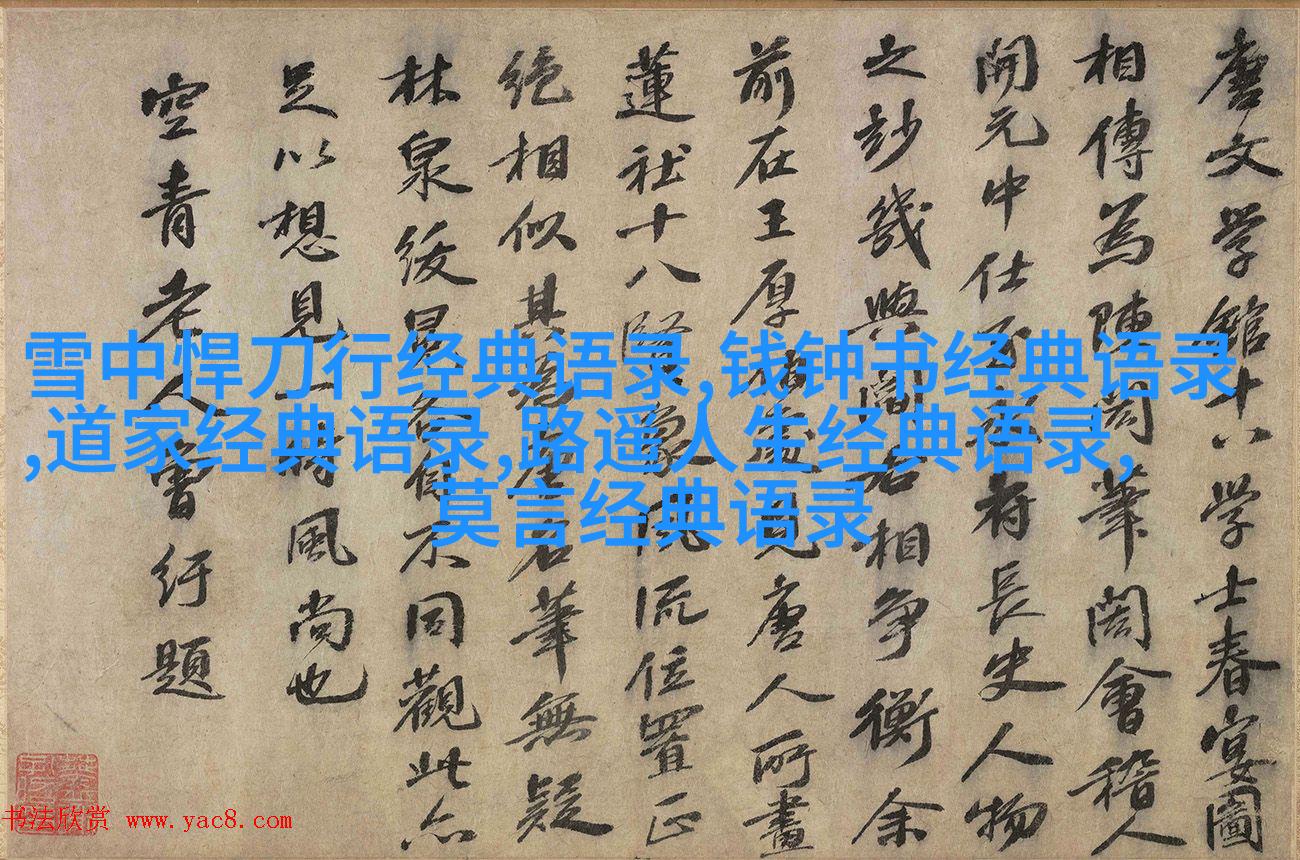 唐文学館十八学士春宴圖
相傳為陳閎筆閎會稽人
開元中仕
府長史人物
之妙幾與閻
相爭衡余
前在王厚
見唐人所畫
蓮社十八賢
流位置正
绝相似其為
名筆無疑
林泉緩
不同觀此亦
足以想見
風尚也
空青老人曾紆題
雪中悍刀行经典语录,钱钟书经典语录
,道家经典语录,路遥人生经典语录,
莫言经典语录
书法欣赏 www.yac8.com